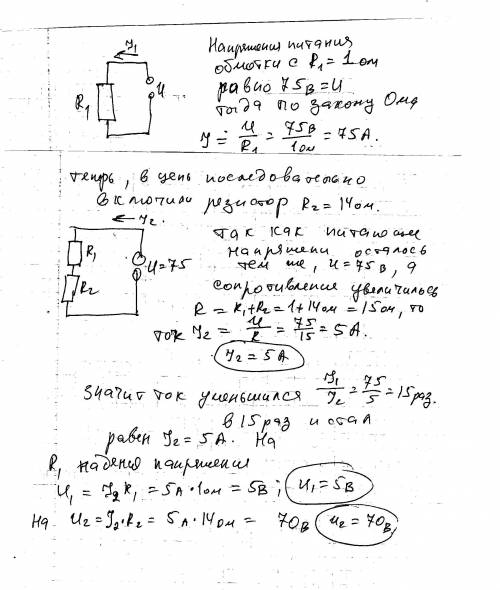 Напряжения питания
обмотки с R₁ = 1 ом
равно 75в = U
тогда по закону Ома
J = U/R₁ = 75В/1ом = 75А.
J₁
R₁
U
теперь, в цепь последовательно
включили резистор R₂ = 14 ом.
J₂.
R₁
R₂
U=75
так как питание
напряжени осталось
тем же, U = 75в, а
сопротивление увеличилось
R = R₁+R₂ = 1+14ом = 15ом, то
ток J₂ = U/R = 75/15 = 5А.
J₂ = 5А
значит ток уменьшился J₁/J₂ = 75/5 = 15раз.
в 15 раз и стал
равен J₂ = 5А. На
R₁ падения напряжения
U₁ = J₂R₁ = 5А·1ом = 5В; U₁ = 5В
На U₂ = J₂·R₂ = 5А·14ом = 70В U₂ = 70В